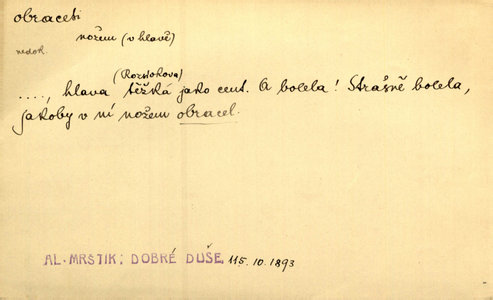 obraceti
nožem (v hlavě)
nedok.
(Rozsokova)
...., hlava těžká jako cent. A bolela! Strašně bolela,
jakoby v ní nožem obracel.
AL. MRŠTIK: DOBRÉ DUŠE, 115. 10. 1893